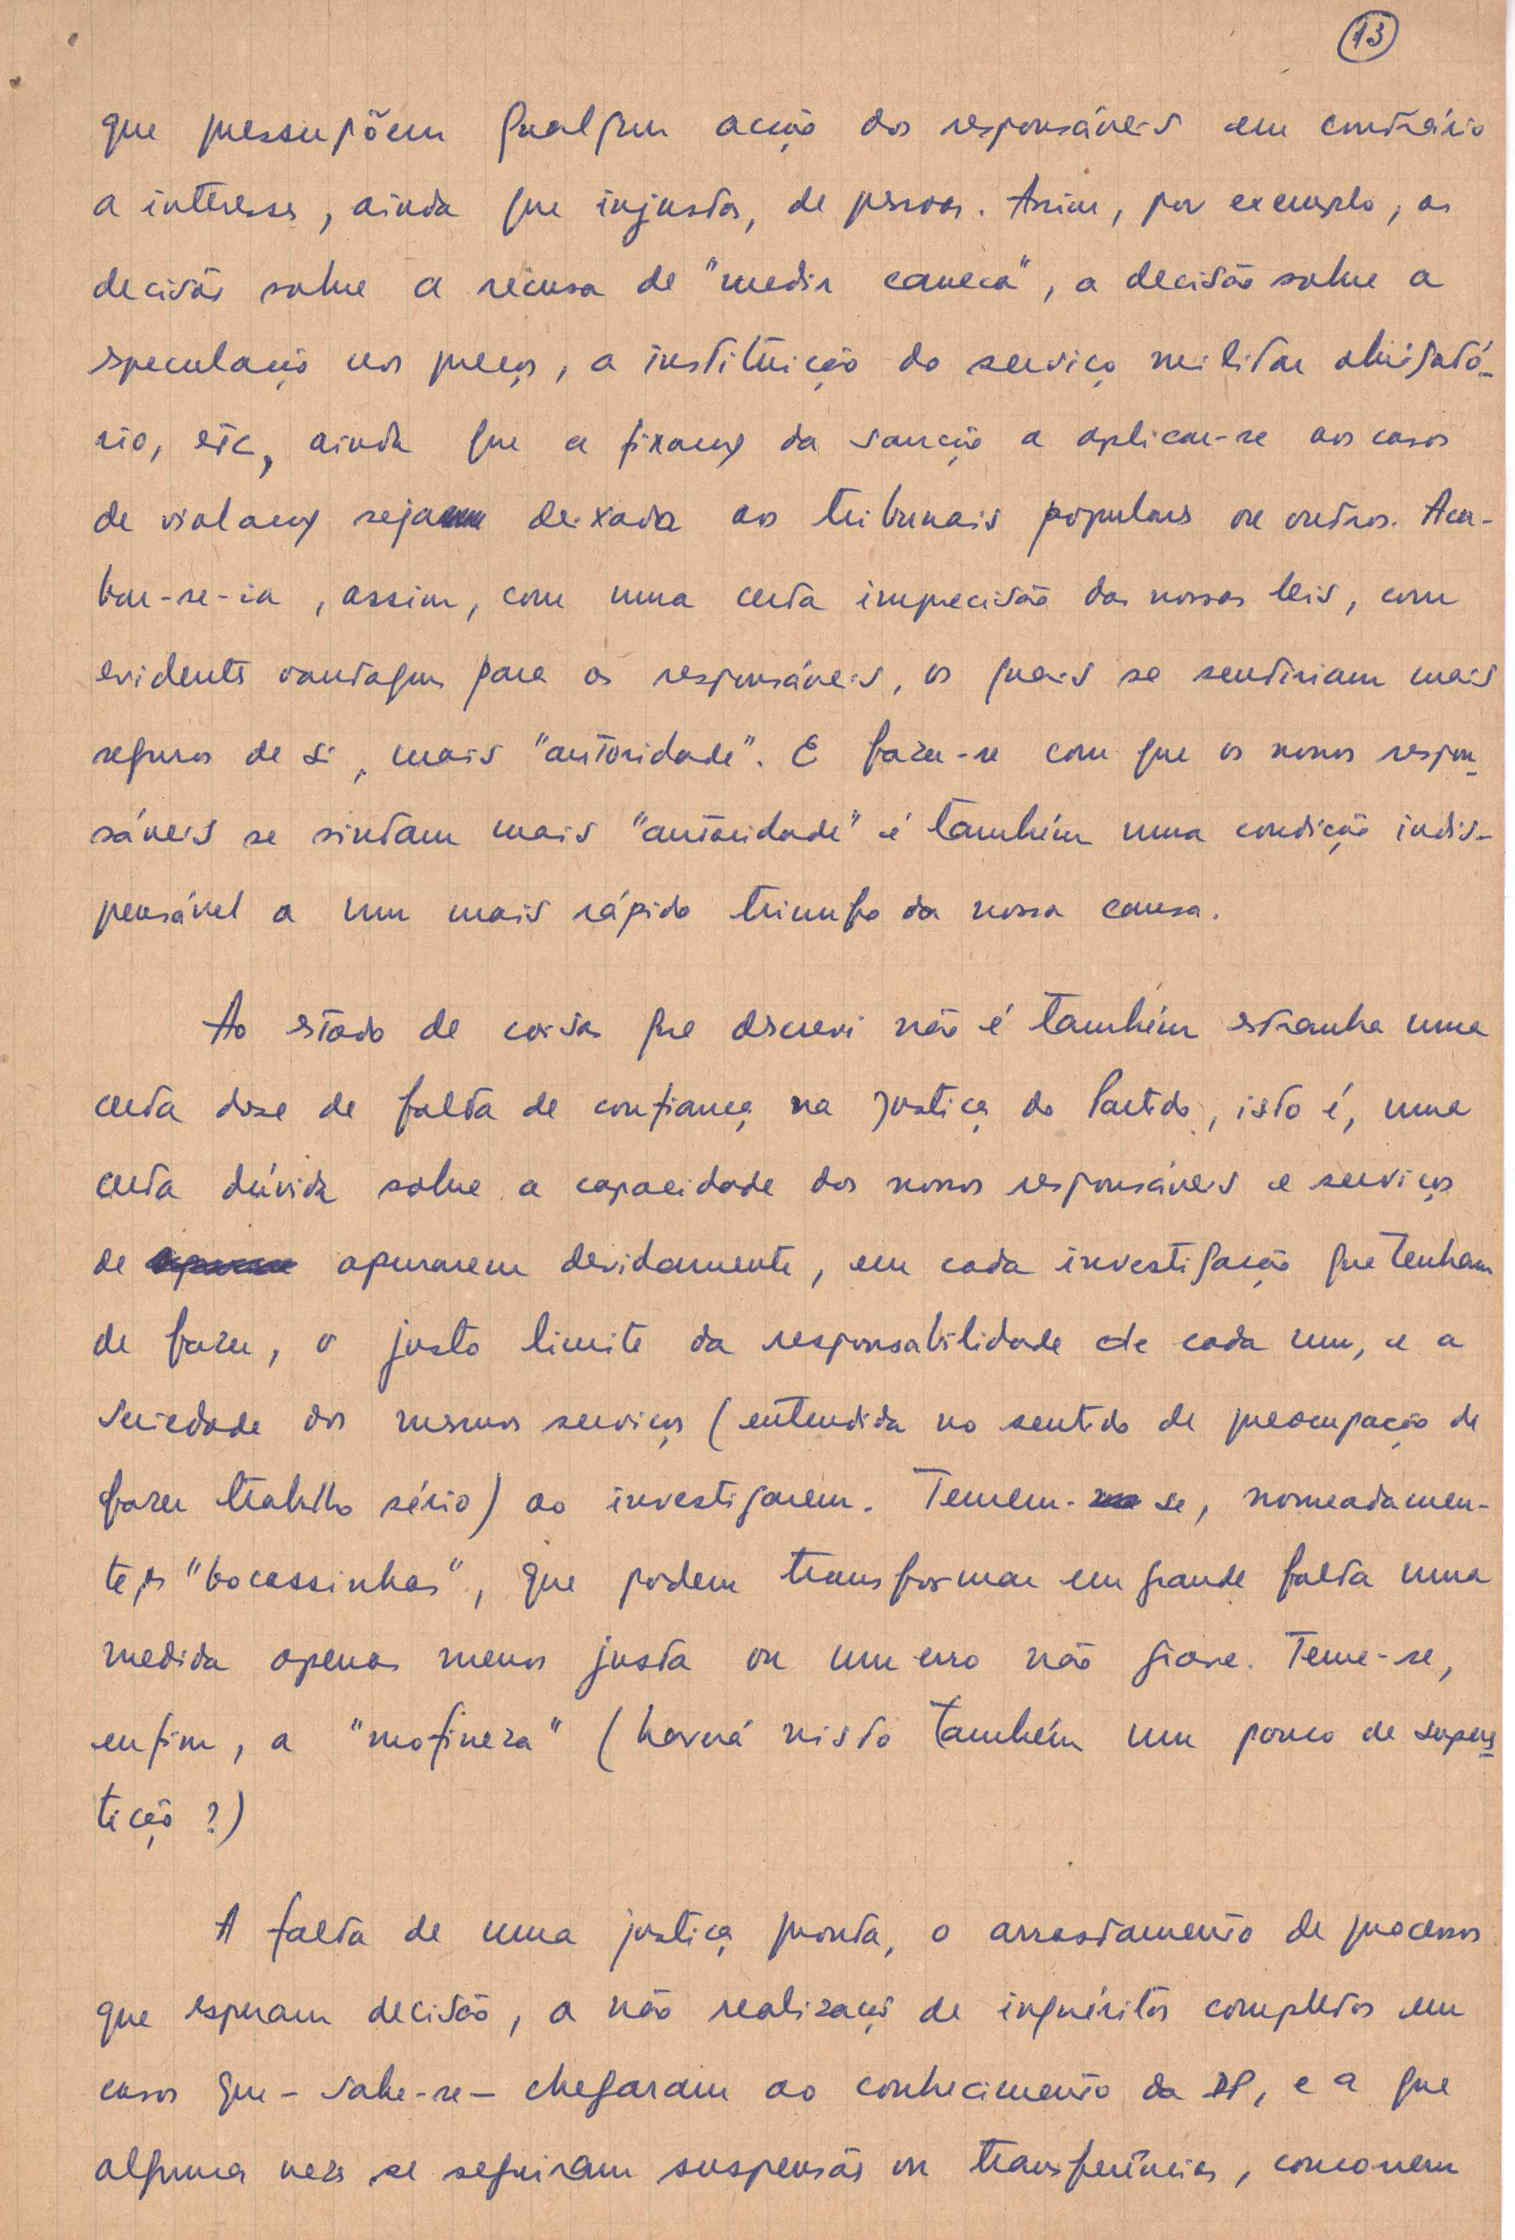 13
que pressupõem qualquer acção dos responsáveis em contrário
a interesses, ainda que injustos, de pessoas. Assim, por exemplo, as
decisões sobre a recusa de "medir caneca", a decisão sobre a
especulação nos preços, a instituição do serviço militar obrigató-
rio, etc, ainda que a fixação da sanção a aplicar-se aos casos
de violação seja deixada aos tribunais populares ou outros. Aca-
bar-se-ia, assim, com uma certa imprecisão das nossas leis, com
evidentes vantagens para os responsáveis, os quais se sentiriam mais
seguros de si, mais "autoridade". E fazer-se com que os nossos respon-
sáveis se sintam mais "autoridade" é também uma condição indis-
pensável a um mais rápido triunfo da nossa causa.
Ao estado de coisas que descrevi não é também estranha uma
certa dose de falta de confiança na justiça do Partido, isto é, uma
certa dúvida sobre a capacidade dos nossos responsáveis e serviços
de apurarem devidamente, em cada investigação que tenham
de fazer, o justo limite da responsabilidade de cada um, e a
seriedade dos mesmos serviços (entendida no sentido de preocupação de
fazer trabalho sério) ao investigarem. Temem-se, nomeadamen-
te, as "bocassinhas", que podem transformar em grande falta uma
medida apenas menos justa ou um erro não grave. Teme-se,
enfim, a "mofineza" (haverá nisto também um pouco de supers
tição?)
A falta de uma justiça pronta, o arrastamento de processos
que esperam decisão, a não realização de inquéritos completos em
casos que - sabe-se - chegaram ao conhecimento da DP, e a que
alguma vezes se seguiram suspensões ou transferências, concorrem